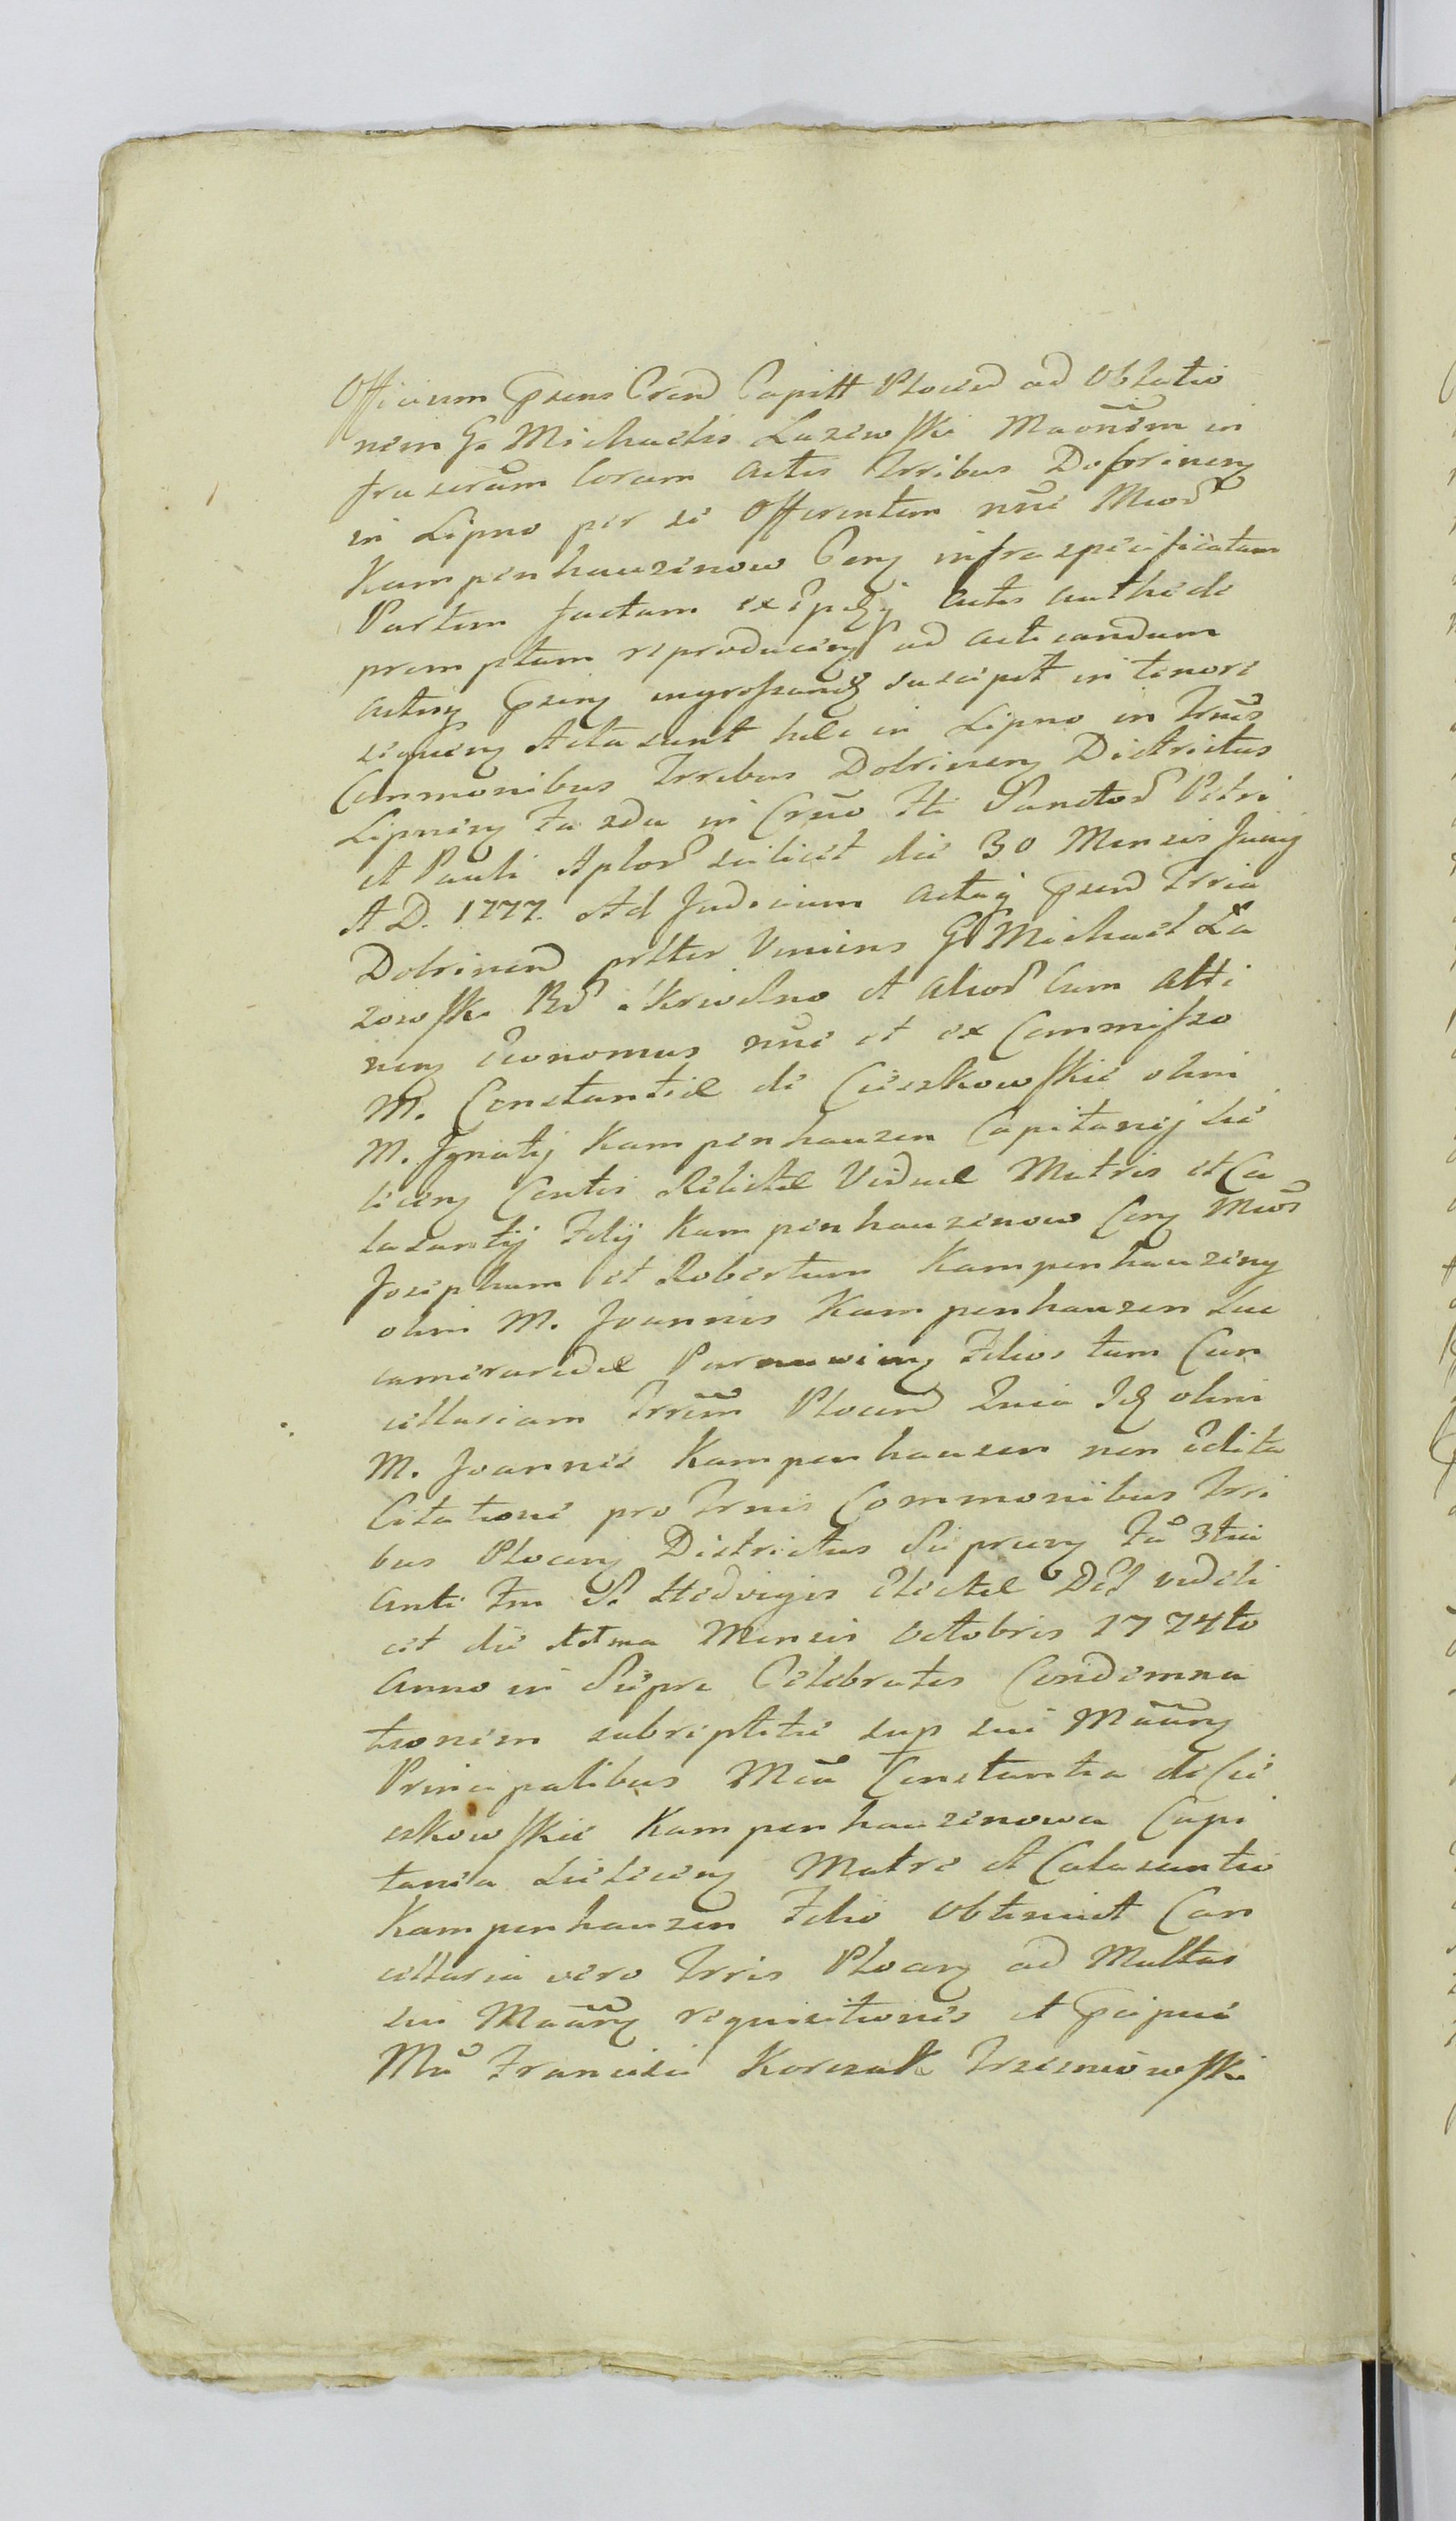 Officium Gsens Crend Capitt Plocen ad Oblatio
nem G. Michaelis Lazewski Maonem in
frascrum Coram Actis Trribus Dobrinen
in Lipno per se Offerentem nne Meor
Kampenhauzenow Cen infraspecificatam
Partem factam ex Actis authe de
promptum reproducen ad acticandum
Actis Gsen ingrossand suscipit in tenore
sequen Acta sunt hec in Lipno in Trnis
Commonibus Trribus Dobrinen Districtus
Lipnen Fa 2da in Crno Fti Sanctor Petri
et Pauli Aplor scilicet die 30 Mensis Junij
A D. 1777. Ad Judicium Actaq Gsend Trria
Dobrinen prltter Veniens G Michael La
zowski Br Krwelno et alior Cum Atti
nen Economus nne et ex Commisso
M. Constantiæ de Cieszkowskie olim
M. Ignatij Kampenhauzen Capitanij Lie
licen Contis Relictæ Viduæ Matris et Ca
lasantij Filij Kampenhauzenow Cen Meos
Josephum et Robertum Kampenhauzeny
olim M. Joannis Kampenhauzen Suc
cameraridæ Parnawien Filios tum Can
cellariam Trrem Plocen Quia Iq olim
M. Joannes Kampenhauzen non Edita
Citatione pro Trnis Commonibus Trri
bus Plocen Districtus Sieprcen Fa 3tia
Ante Fm S. Hedvigis Electæ Dei videli
cet die Mensis Octobris 1774to
Anno in Siepre Celebratis Condemna
tionem subreptitie sup sui Maany
Principalibus Mea Constantia de Cie
szkowskie Kampenhauzenowa Capi
tanea Lielicen Matre et Calasantio
Kampenhauzen Filio Obtenuit Can
cellaria vero Trris Plocen ad Multas
sui Maany requisitiones et Gcipue
Ma Francisci Korczak Trzcinowski